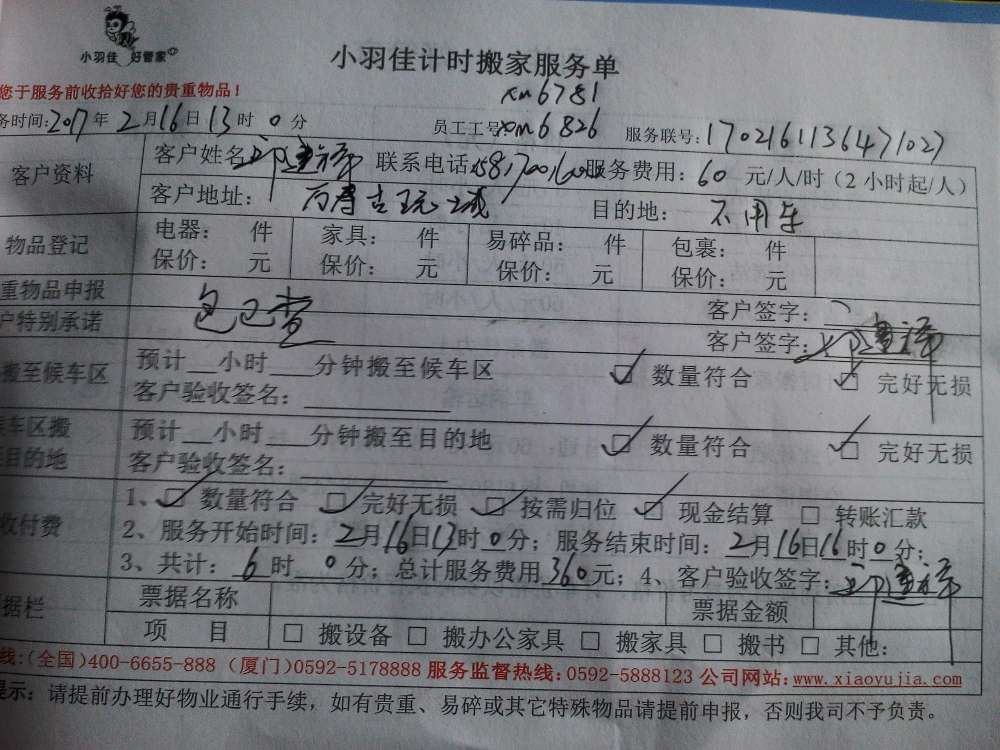 小羽佳 好管家
小羽佳计时搬家服务单
您于服务前收拾好您的贵重物品！
xm6781
务时间:2017年2月16日13时0分 员工工号:xm6826 服务联号:1702161136471027
客户资料 客户姓名: 联系电话: 服务费用: 60 元/人/时（2小时起/人）
客户地址: 目的地: 不用车
物品登记 电器: 件 家具: 件 易碎品: 件 包裹: 件
保价: 元 保价: 元 保价: 元 保价: 元
重物品申报 客户签字:
户特别承诺 包已查 客户签字:
搬至候车区 预计__小时___分钟搬至候车区 ☑ 数量符合 ☑ 完好无损
客户验收签名:
候车区搬 预计__小时___分钟搬至目的地 ☑ 数量符合 ☑ 完好无损
目的地 客户验收签名:
收付费 1、☑ 数量符合 ☑ 完好无损 ☑ 按需归位 ☑ 现金结算 □ 转账汇款
2、服务开始时间: 2月16日13时0分; 服务结束时间: 2月16日16时0分;
3、共计: 6时 0分; 总计服务费用 360元; 4、客户验收签字:
据栏 票据名称 票据金额
项 目 □ 搬设备 □ 搬办公家具 □ 搬家具 □ 搬书 □ 其他:
线:(全国)400-6655-888 (厦门)0592-5178888 服务监督热线:0592-5888123 公司网站:www.xiaoyujia.com
提示: 请提前办理好物业通行手续，如有贵重、易碎或其它特殊物品请提前申报，否则我司不予负责。